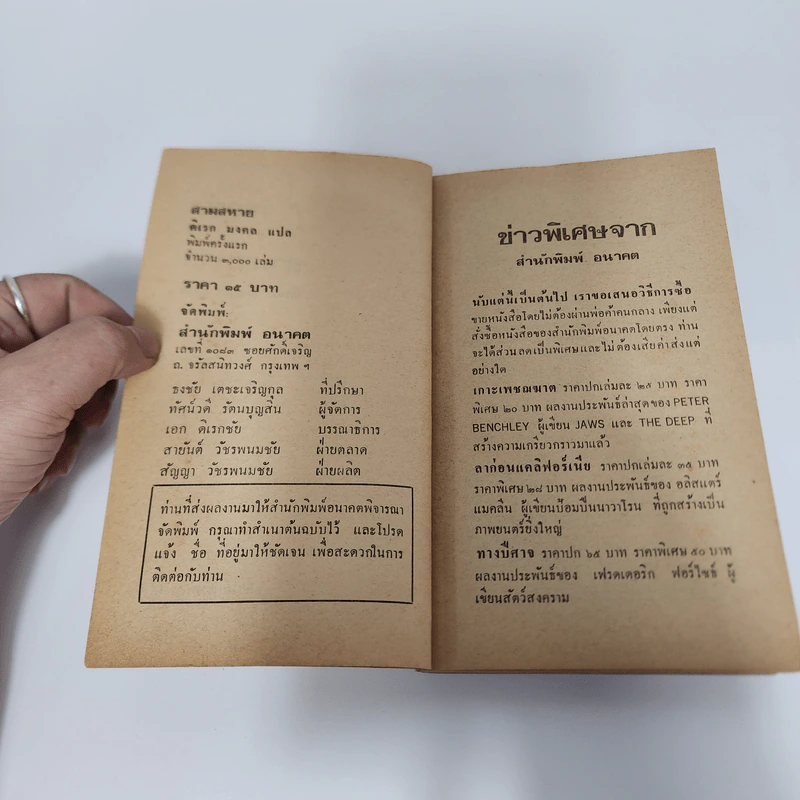 สามสหาย
ดิเรก มงคล แปล
พิมพ์ครั้งแรก
จำนวน ๓,๐๐๐ เล่ม
ราคา ๑๕ บาท
จัดพิมพ์:
สำนักพิมพ์ อนาคต
เลขที่ ๑๐๘๓ ซอยศักดิ์เจริญ
ถ. จรัลสนิทวงศ์ กรุงเทพ ฯ
ธงชัย เตชะเจริญกุล ที่ปรึกษา
ทัศน์วดี รัตนบุญสิน ผู้จัดการ
เอก ดิเรกชัย บรรณาธิการ
สายยันต์ วัชรพนมชัย ฝ่ายตลาด
สัญญา วัชรพนมชัย ฝ่ายผลิต
ท่านที่ส่งผลงานมาให้สำนักพิมพ์อนาคตพิจารณา
จัดพิมพ์ กรุณาทำสำเนาต้นฉบับไว้ และโปรด
แจ้ง ชื่อ ที่อยู่มาให้ชัดเจน เพื่อสะดวกในการ
ติดต่อกับท่าน
ข่าวพิเศษจาก
สำนักพิมพ์ อนาคต
นับแต่นี้เป็นต้นไป เราขอเสนอวิธีการซื้อ
ขายหนังสือโดยไม่ต้องผ่านพ่อค้าคนกลาง เพียงแต่
สั่งซื้อหนังสือของสำนักพิมพ์อนาคตโดยตรง ท่าน
จะได้ส่วนลดเป็นพิเศษและไม่ต้องเสียค่าส่งแต่
อย่างใด
เกาะเพชฌฆาต ราคาปกเล่มละ ๒๕ บาท ราคา
พิเศษ ๒๐ บาท ผลงานประพันธ์ล่าสุดของ PETER
BENCHLEY ผู้เขียน JAWS และ THE DEEP ที่
สร้างความเกรียวกราวมาแล้ว
ลาก่อนแคลิฟอร์เนีย ราคาปกเล่มละ ๓๕ บาท
ราคาพิเศษ ๒๘ บาท ผลงานประพันธ์ของ อลิสแตร์
แมคลีน ผู้เขียนป้อมปืนนาวาโรน ที่ถูกสร้างเป็น
ภาพยนตร์ยิ่งใหญ่
ทางปีศาจ ราคาปก ๖๕ บาท ราคาพิเศษ ๕๐ บาท
ผลงานประพันธ์ของ เฟรดเดอริก ฟอร์ไซธ์ ผู้
เขียนสัตว์สงคราม